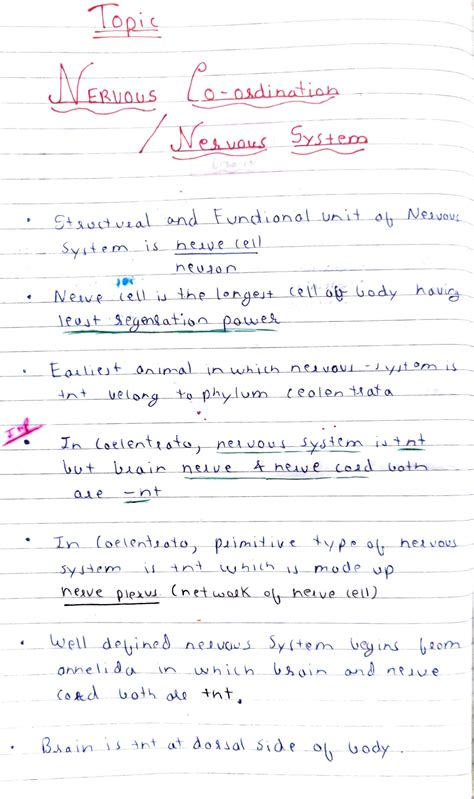 Topic
NERVOUS Co-ordination
/ Nervous System
• Structural and Functional unit of Nervous
System is nerve cell
neuron
• Nerve cell is the longest cell of body having
least regenration power
• Earliest animal in which nervous-system is
+nt belong to phylum Ceolentrata
Imp
• In Coelentrata, nervous system is +nt
but brain nerve & nerve cord both
are -nt
• In Coelentrata, primitive type of nervous
system is +nt which is made up
nerve plexus (network of nerve cell)
• Well defined nervous System begins from
annelida in which brain and nerve
cord both are +nt.
• Brain is +nt at dorsal side of body.